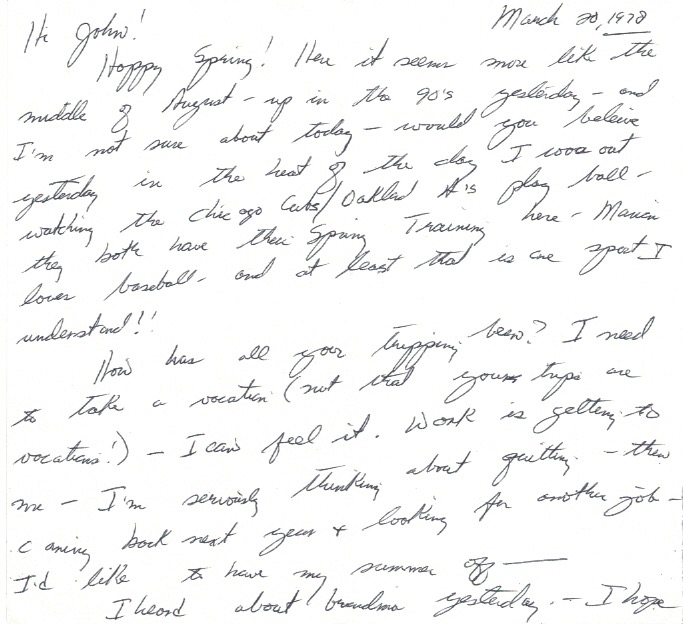 March 20, 1978
Hi John!
Happy Spring! Here it seems more like the
middle of August - up in the 90's yesterday - and
I'm not sure about today - would you beleive
yesterday in the heat of the day I was out
watching the Chicago Cubs/Oakland A's play ball -
they both have their Spring Training here - Marian
loves baseball - and at least that is one sport I
understand!!
How has all your tripping been? I need
to take a vacation (not that your trips are
vacations!) - I can feel it. Work is getting to
me - I'm seriously thinking about quitting - then
coming back next year & looking for another job -
I'd like to have my summer off -
I heard about Grandma yesterday. - I hope